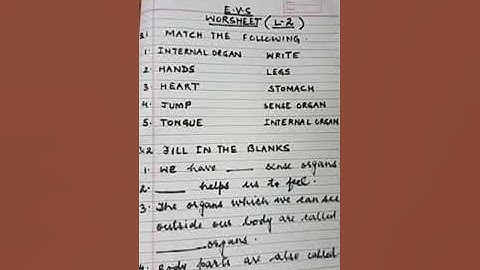 E.V.S
WORSHEET (L-2)
Q1 MATCH THE FOLLOWING.
1. INTERNAL ORGAN WRITE
2. HANDS LEGS
3. HEART STOMACH
4. JUMP SENSE ORGAN
5. TONGUE INTERNAL ORGAN
Q2 FILL IN THE BLANKS
1. We have ____ sense organs
2. ____ helps us to feel.
3. The organs which we can see
outside our body are called
______ organs.
4. Body parts are also called